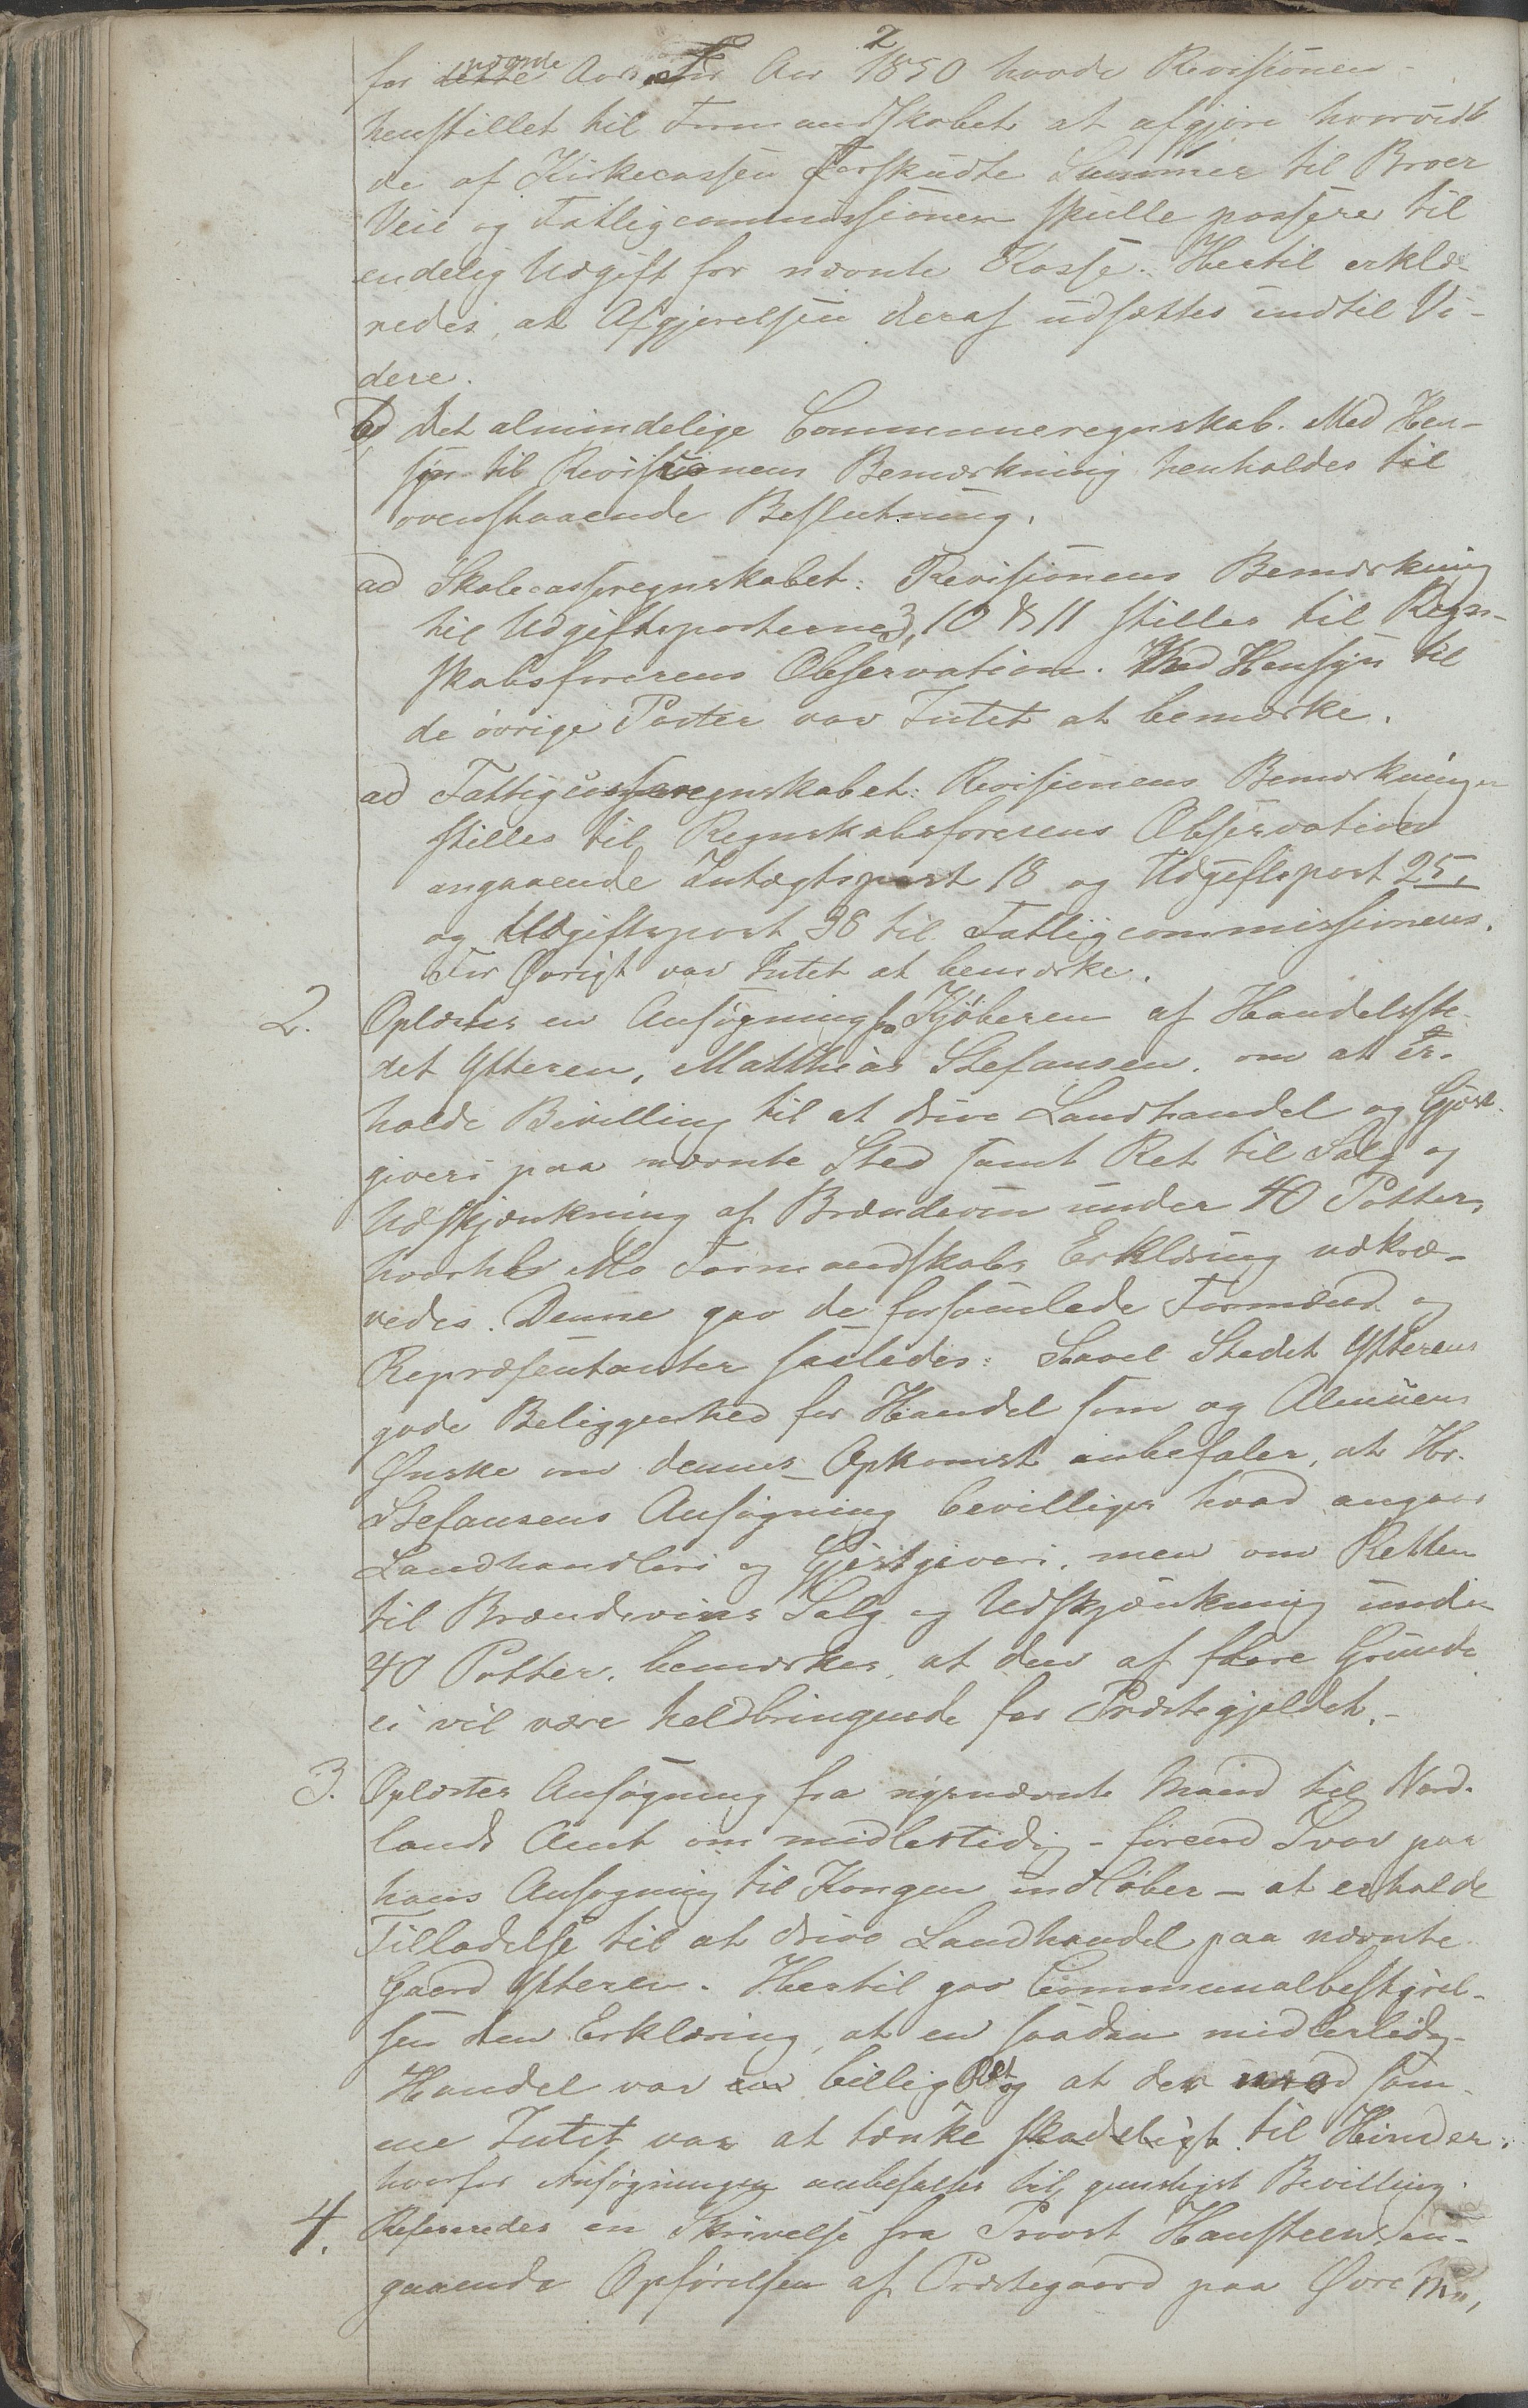 for nævnte Aar. For Aar 1850 havde Revisionen
henstillet til Formandskabet at afgjøre hvorvidt
de af Kirkecassen forskudte Summer til Broer
Veie og Fattigcommissionen skulle passere til
endelig Udgift for nævnte Kasse. Hertil erklæ-
redes, at Afgjørelsen deraf udsættes indtil Vi-
dere.
b) det almindelige Communeregnskab. Med Hen-
syn til Revisionens Bemærkning henholdes til
ovenstaaende Beslutning.
ad Skolecasseregnskabet: Revisionens Bemærkning
til Udgiftsposterne 3, 10 & 11 stilles til Regn-
skabsførerens Observation. Med Hensyn til
de øvrige Poster var Intet at bemærke.
ad Fattigcasseregnskabet: Revisionens Bemærkninger
stilles til Regnskabsførerens Observation
angaaende Indtægtspost 18 og Udgiftspost 25,
og Udgiftspost 38 til Fattigcommissionens.
For Øvrigt var Intet at bemærke.
2. Oplæstes en Ansøgning fra Kjøberen af Handelsste-
det Ytteren, Matthias Stefansen, om at er-
holde Bevilling til at drive Landhandel og Gjæst-
giveri paa nævnte Sted samt Ret til Salg og
Udskjænkning af Brændeviin under 40 Potter,
hvorhos Mo Formandskabs Erklæring udkræ-
vedes. Denne gav de forsamlede Formænd og
Repræsentanter saaledes: Saavel Stedet Ytterens
gode Beliggenhed for Handel som og Almuens
Ønske om dennes Opkomst anbefaler, at Hr.
Stefansens Ansøgning bevilliges hvad angaar
Landhandleri og Gjæstgiveri, men om Retten
til Brændevins Salg og Udskjænkning under
40 Potter, bemærkes, at den af flere Grunde
ei vil være heldbringende for Præstegjeldet.-
3. Oplæstes Ansøgning fra nysnævnte Mand til Nord-
lands Amt om midlertidig - førend Svar paa
hans Ansøgning til Kongen indløber - at erholde
Tilladelse til at drive Landhandel paa nævnte
Gaard Ytteren. Hertil gav Communalbestyrel-
sen den Erklæring, at en saadan midlertidig
Handel var billig og at der med sam-
me Intet var at tænke skadeligt til Hinder,
hvorfor Ansøgningen anbefales til gunstigst Bevilling.
4. Refereredes en Skrivelse fra Provst Hansteen an-
gaaende Opførelsen af Præstegaard paa Øvre Mo,